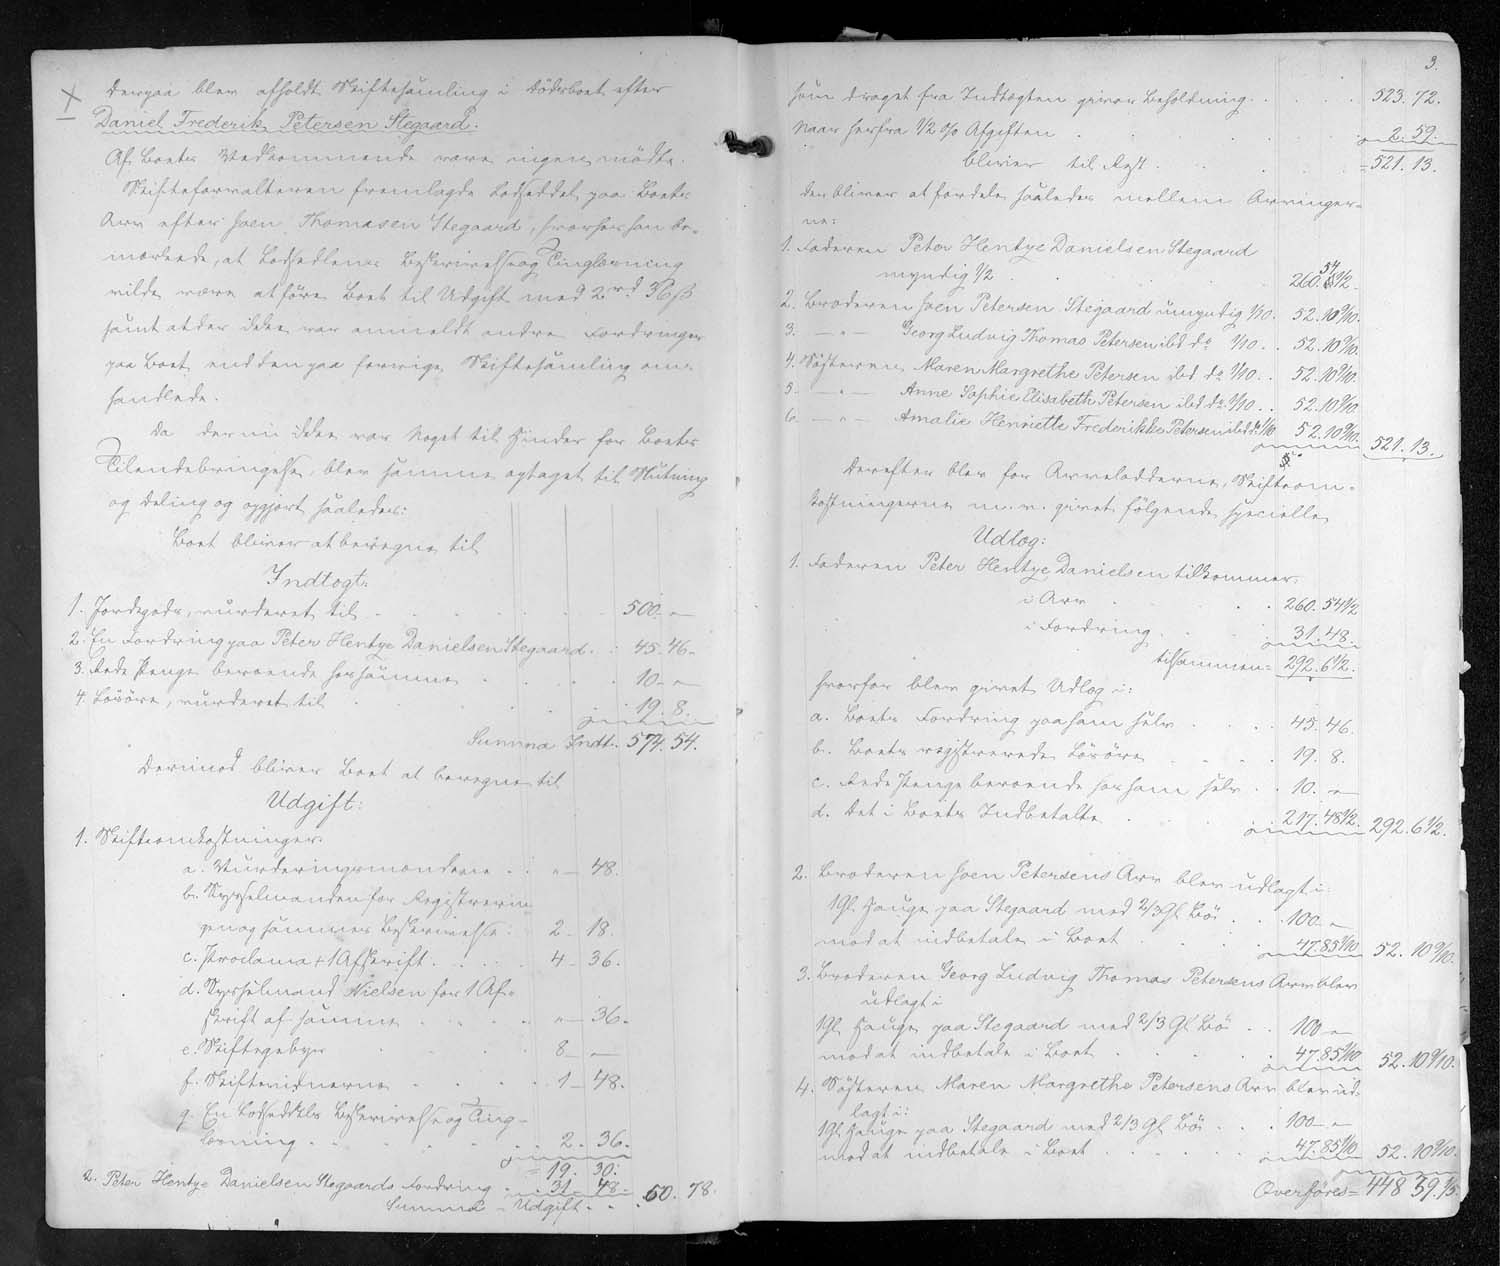 Derpaa blev afholdt Skiftesamling i Dödsboet efter
Daniel Frederik Petersen Stegaard:
Af Boets Vedkommende vare ingen mödte.
Skifteforvalteren fremlagde Lodseddel paa Boets
Arv efter Joen Thomasen Stegaard, hvorhos han be-
mærkede, at Lodsedlens Beskrivelse og Tinglæsning
vilde være at före Boet til Udgift med 2 rd 36 ß
samt at der ikke var anmeldt andre Fordringer
paa Boet end den paa forrige Skiftesamling om-
handlede.
Da der nu ikke var Noget til Hinder for Boets
Tilendebringelse, blev samme optaget til Slutning
og Deling og opgjort saaledes:
Boet bliver at beregne til
Indtægt:
1. Jordegods, vurderet til . . . 500. "
2. En Fordring paa Peter Hentye Danielsen Stegaard . . 45. 46.
3. Rede Penge beroende hos samme . . . 10. "
4. Lösöre, vurderet til . . . 19. 8.
Summa Indt. 574. 54.
Derimod bliver Boet at beregne til
Udgift:
1. Skifteomkostninger:
a. Vurderingsmændene . . " 48.
b. Sysselmanden for Registrerin-
gen og sammes Beskrivelse . 2. 18.
c. Proclama + 1 Afskrift . . . 4. 36.
d. Sysselmand Nielsen for 1 Af-
skrift af samme . . . " 36.
e. Skiftegebyr . . 8. "
f. Skiftevidnerne . . . 1. 48.
g. En Lodseddels Beskrivelse og Ting-
læsning . . . 2. 36.
= 19. 30.
2. Peter Hentye Danielsen Stegaards Fordring . . 31. 48. 50. 78.
Summa Udgift . .
3.
som draget fra Indtægten giver Beholdning . . . 523. 72.
Naar herfra 1/2 % Afgiften . . . 2. 59.
bliver til Rest . . . = 521. 13.
der bliver at fordele saaledes mellem Arvinger-
ne:
1. Faderen Peter Hentye Danielsen Stegaard
myndig 1/2 . . . 260. 54 1/2.
2. Broderen Joen Petersen Stegaard umyndig 1/10. 52. 10 9/10.
3. — " — Georg Ludvig Thomas Petersen ibd do 1/10 . . 52. 10 9/10.
4. Söstren Maren Margrethe Petersen ibd do 1/10 . . 52. 10 9/10.
5. — " — Anne Sophie Elisabeth Petersen ibd do 1/10 . . 52. 10 9/10.
6. — " — Amalie Henriette Frederikke Petersen ibd do 1/10 52. 10 9/10. 521. 13.
Derefter blev for Arvelodderne, Skifteom-
kostningerne m. v. givet fölgende specielle
Udlæg:
1. Faderen Peter Hentye Danielsen tilkommer:
i Arv . . . 260. 54 1/2
i Fordring . . . 31. 48.
tilsammen = 292. 6 1/2.
hvorfor blev givet Udlæg i:
a. Boets Fordring paa ham selv . . . 45. 46.
b. Boets registrerede Lösöre . . . 19. 8.
c. Rede Penge beroende hos ham selv . . 10. "
d. Det i Boets Indbetalte . . . 217. 48 1/2. 292. 6 1/2.
2. Broderen Joen Petersens Arv blev udlagt i:
1 Gl. Hauge paa Stegaard med 2/3 Gl. Bö . . . 100. "
mod at indbetale i Boet . . . 47. 85 1/10 52. 10 9/10.
3. Broderen Georg Ludvig Thomas Petersens Arv blev
udlagt i
1 Gl. Hauge paa Stegaard med 2/3 Gl. Bö . . 100. "
mod at indbetale i Boet . . . 47. 85 1/10 52. 10 9/10.
4. Söstren Maren Margrethe Petersens Arv blev ud-
lagt i:
1 Gl. Hauge paa Stegaard med 2/3 Gl. Bö . . . 100. "
mod at indbetale i Boet . . . 47. 85 1/10 52. 10 9/10.
Overföres = 448 39. 1/5